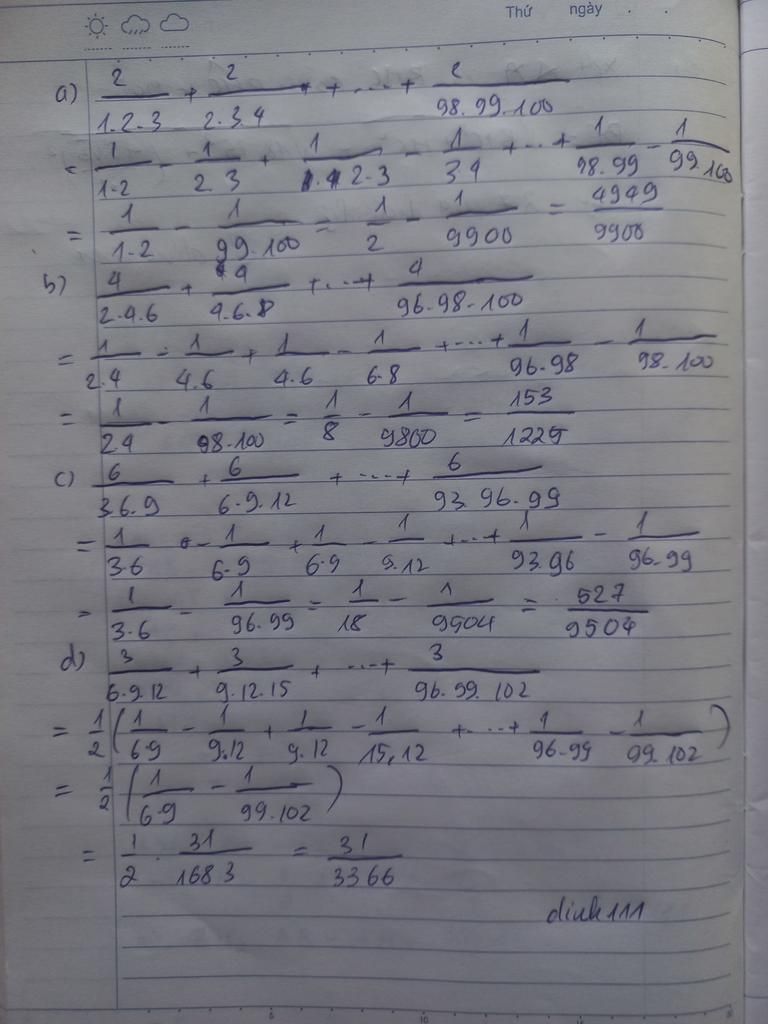 Thứ ngày . .
a) 2/1.2.3 + 2/2.3.4 + + ... + 2/98.99.100
= 1/1.2 - 1/2.3 + 1/2.3 - 1/3.4 + ... + 1/98.99 - 1/99.100
= 1/1.2 - 1/99.100 = 1/2 - 1/9900 = 4949/9900
b) 4/2.4.6 + 4/4.6.8 + ... + 4/96.98.100
= 1/2.4 - 1/4.6 + 1/4.6 - 1/6.8 + ... + 1/96.98 - 1/98.100
= 1/2.4 - 1/98.100 = 1/8 - 1/9800 = 153/1225
c) 6/3.6.9 + 6/6.9.12 + ... + 6/93.96.99
= 1/3.6 - 1/6.9 + 1/6.9 - 1/9.12 + ... + 1/93.96 - 1/96.99
= 1/3.6 - 1/96.99 = 1/18 - 1/9504 = 527/9504
d) 3/6.9.12 + 3/9.12.15 + ... + 3/96.99.102
= 1/2 (1/6.9 - 1/9.12 + 1/9.12 - 1/15.12 + ... + 1/96.99 - 1/99.102)
= 1/2 (1/6.9 - 1/99.102)
= 1/2 . 31/1683 = 31/3366
dinh111